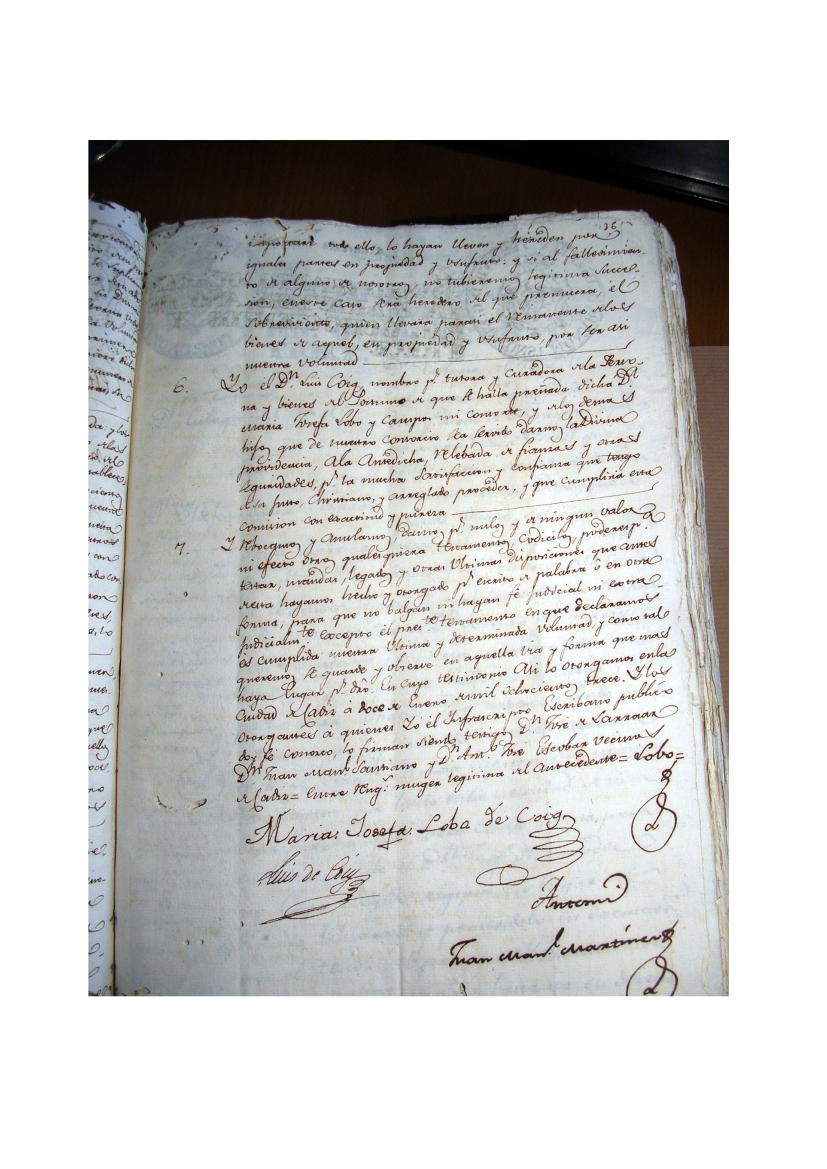 36
importare todo ello, lo hayan lleven y hereden por
iguales partes en propiedad y usufruto: y si al fallecimien-
to de alguno de nosotros, no tubieremos legitima succe-
sion, en este caso sera heredero del que premuera, el
sobreviviente, quien llevará para si el remanente de los
bienes de aquel, en propiedad y usufruto, por ser asi
nuestra voluntad
6. Yo el Dn. Luis Coig, nombro pr. tutora y curadora de la Perso-
na y bienes del Postumo de que se halla preñada dicha Da.
Maria Josefa Lobo y Campo mi consorte, y de los demas
hijos que de nuestro consorcio sea servido darnos la divina
providencia, A la Antedicha, relebada de fianzas y otras
seguridades, pr. la mucha satisfaccion y confianza que tengo
de su justo, Christiano, y arreglado proceder, y que cumplirá esta
comision con exactitud y pureza
7. Y Revocamos y Anulamos, damos pr. nulos y de ningun valor
ni efecto otros qualesquiera testamentos, Codicilos, poderes pa.
testar, mandas, legados y otras ultimas disposiciones que antes
de esta hayamos hecho y otorgado pr. escrito de palabra ó en otra
forma, para que no balgan ni hagan fé judicial ni extra-
judicialmte. excepto él preste. testamento en que declaramos
es cumplida nuestra ultima y determinada voluntad, y como tal
queremos se guarde y observe en aquella via y forma que mas
haya lugar pr. dro. En cuyo testimonio Asi lo otorgamos en la
Ciudad de Cadiz á doce de Enero de mil ochocientos trece. Y los
otorgantes á quienes Yo él Infrascripto Escribano público
doy fé conozco, lo firman siendo testigos Dn. José de Larroar
Dn. Juan Manl. Santiano y Dn. Anto. José Escobar vecinos
de Cadiz = Entre Rengs. muger legitima del Antecedente = Lobo =
Maria Josefa Loba de Coig
Luis de Coig
Antemi
Juan Manl. Martinez